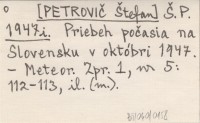 [PETROVIČ Štefan] Š. P.
1947.i. Priebeh počasia na
Slovensku v októbri 1947.
- Meteor. Zpr. 1, nr 5:
112-113, il. (m.).